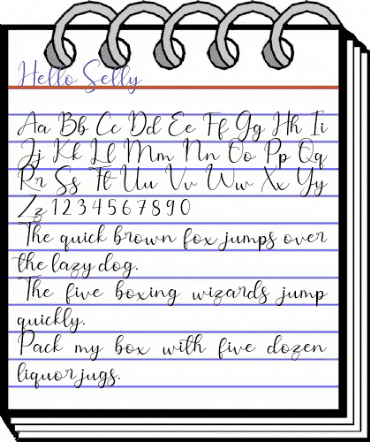 Hello Selly
Aa Bb Cc Dd Ee Ff Gg Hh Ii
Jj Kk Ll Mm Nn Oo Pp Qq
Rr Ss Tt Uu Vv Ww Xx Yy
Zz 1 2 3 4 5 6 7 8 9 0
The quick brown fox jumps over
the lazy dog.
The five boxing wizards jump
quickly.
Pack my box with five dozen
liquor jugs.